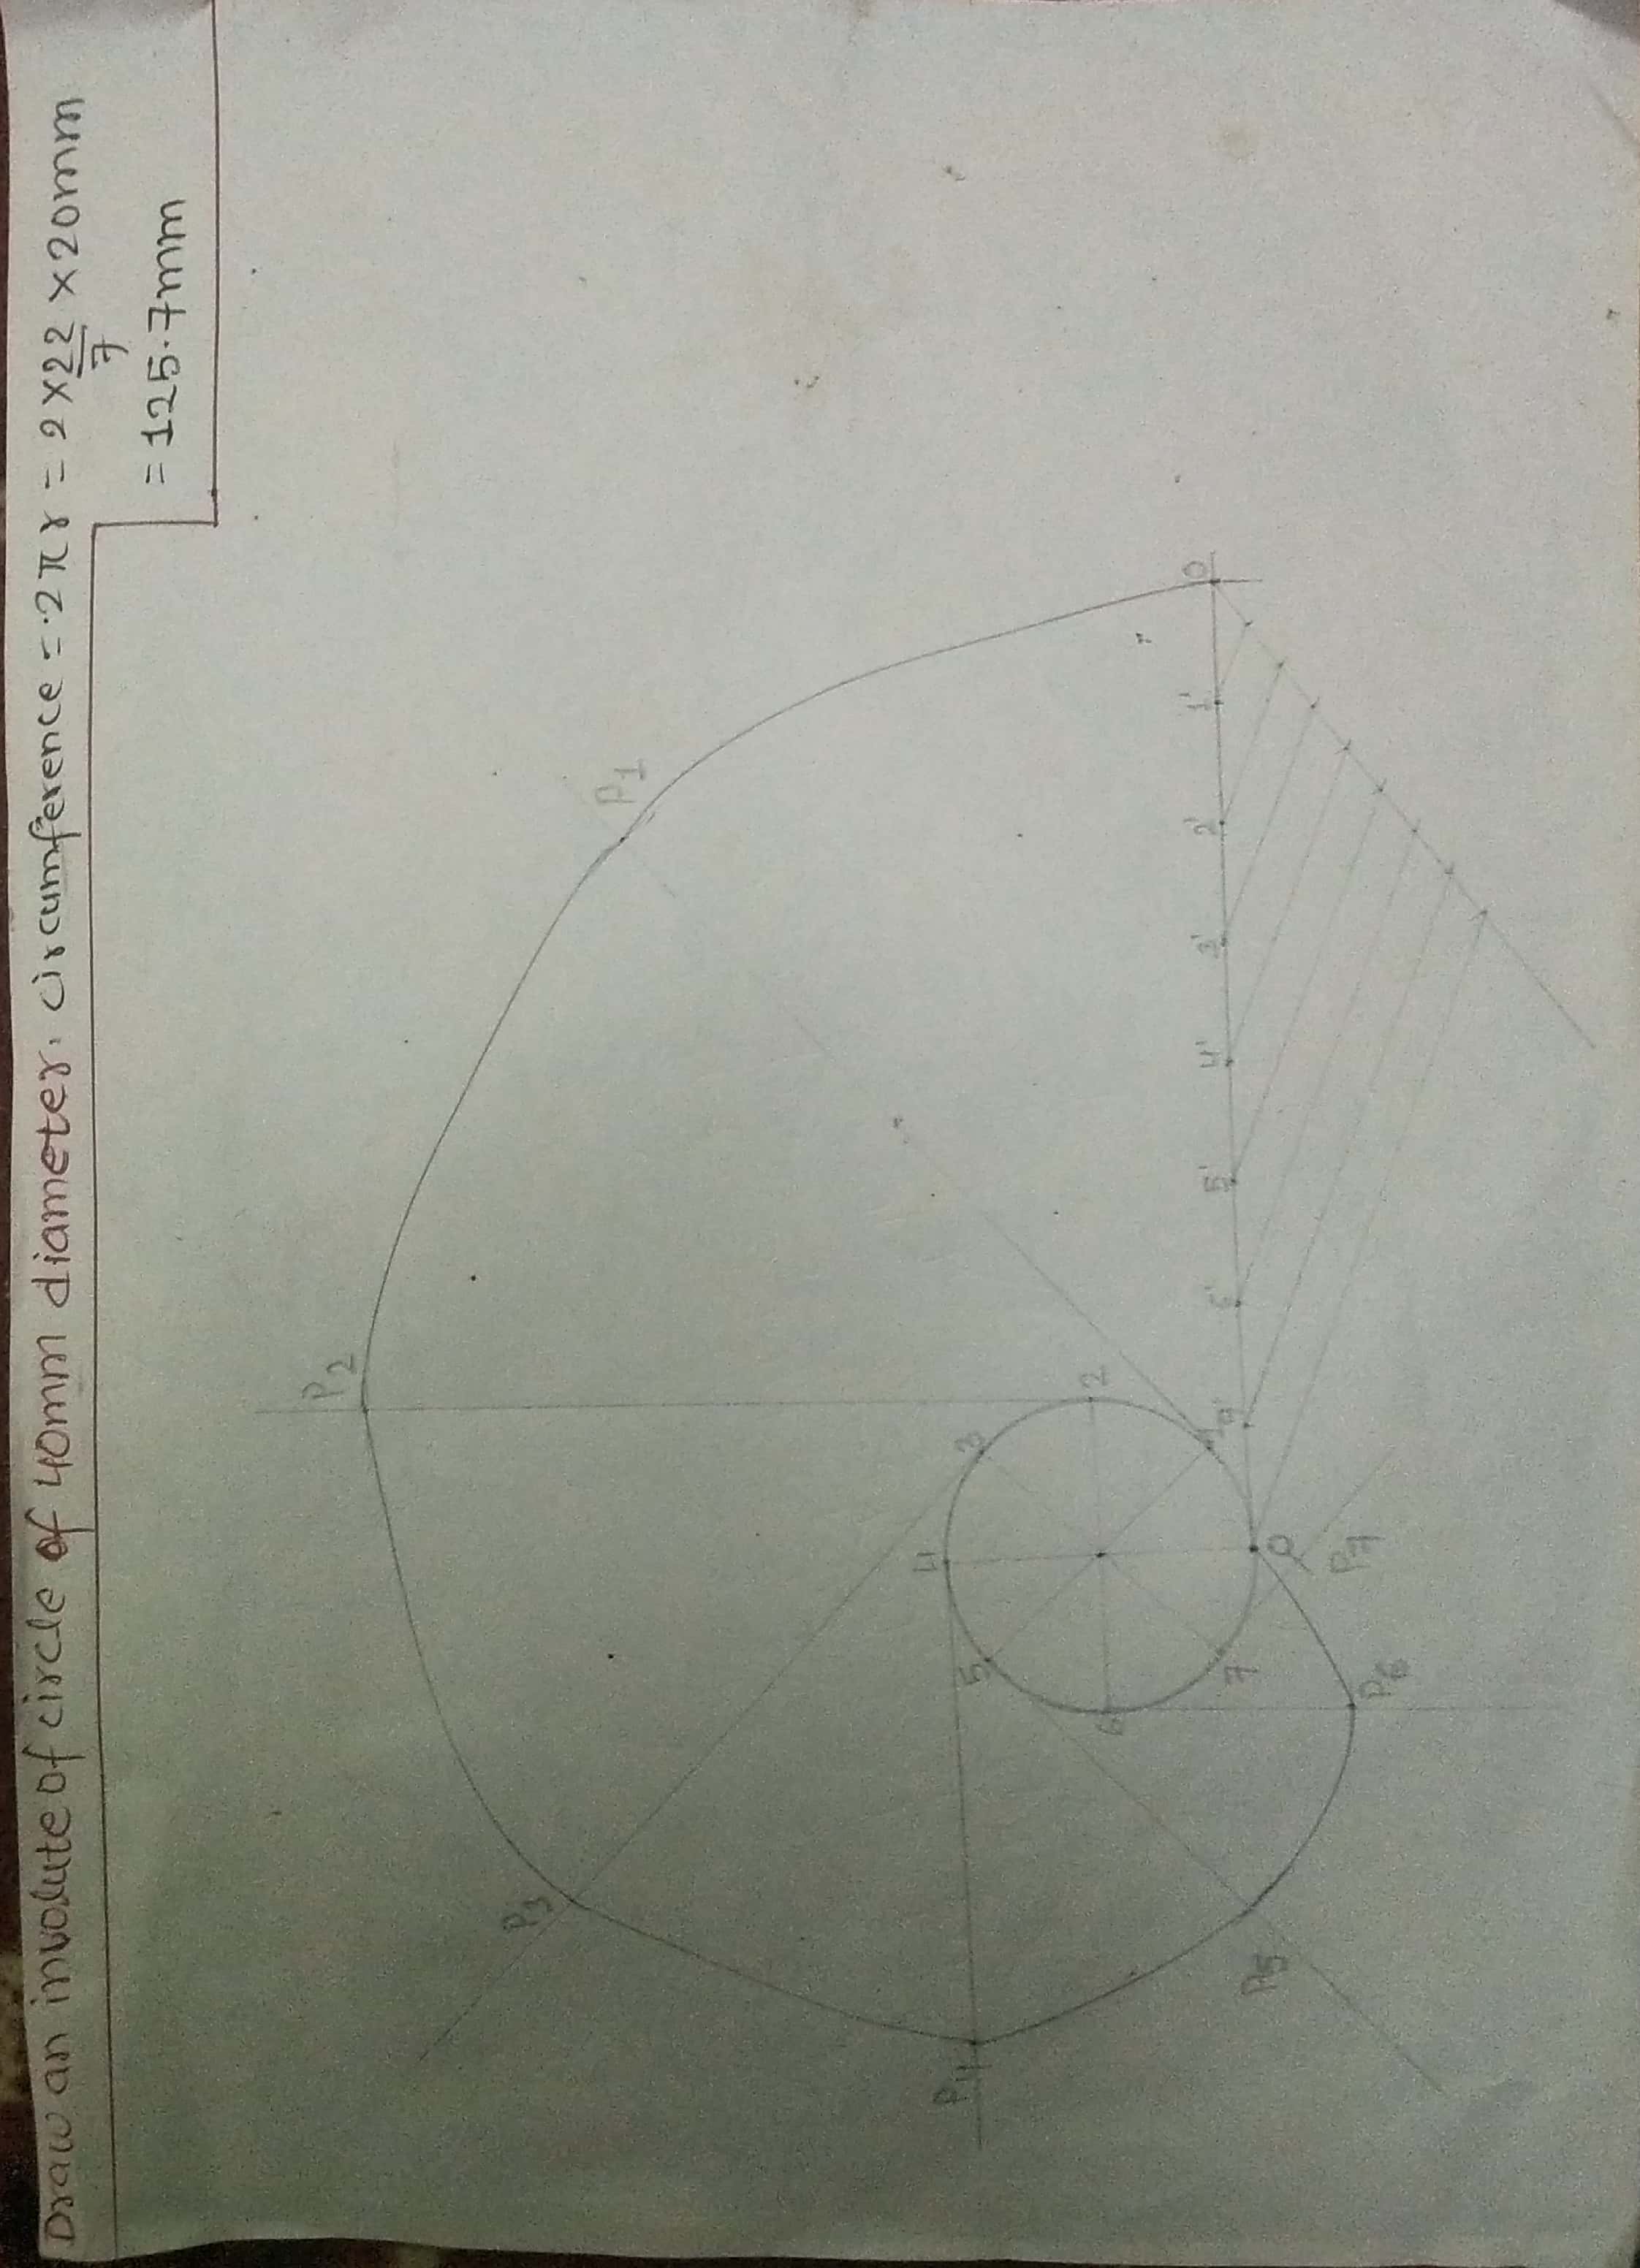 Draw an involute of circle of 40mm diameter. circumference = 2πr = 2 × 22/7 × 20mm
= 125.7mm
P2
P1
P3
3
2
4
5
6
7
1
P4
P5
P6
P7
P
0
1'
2'
3'
4'
5'